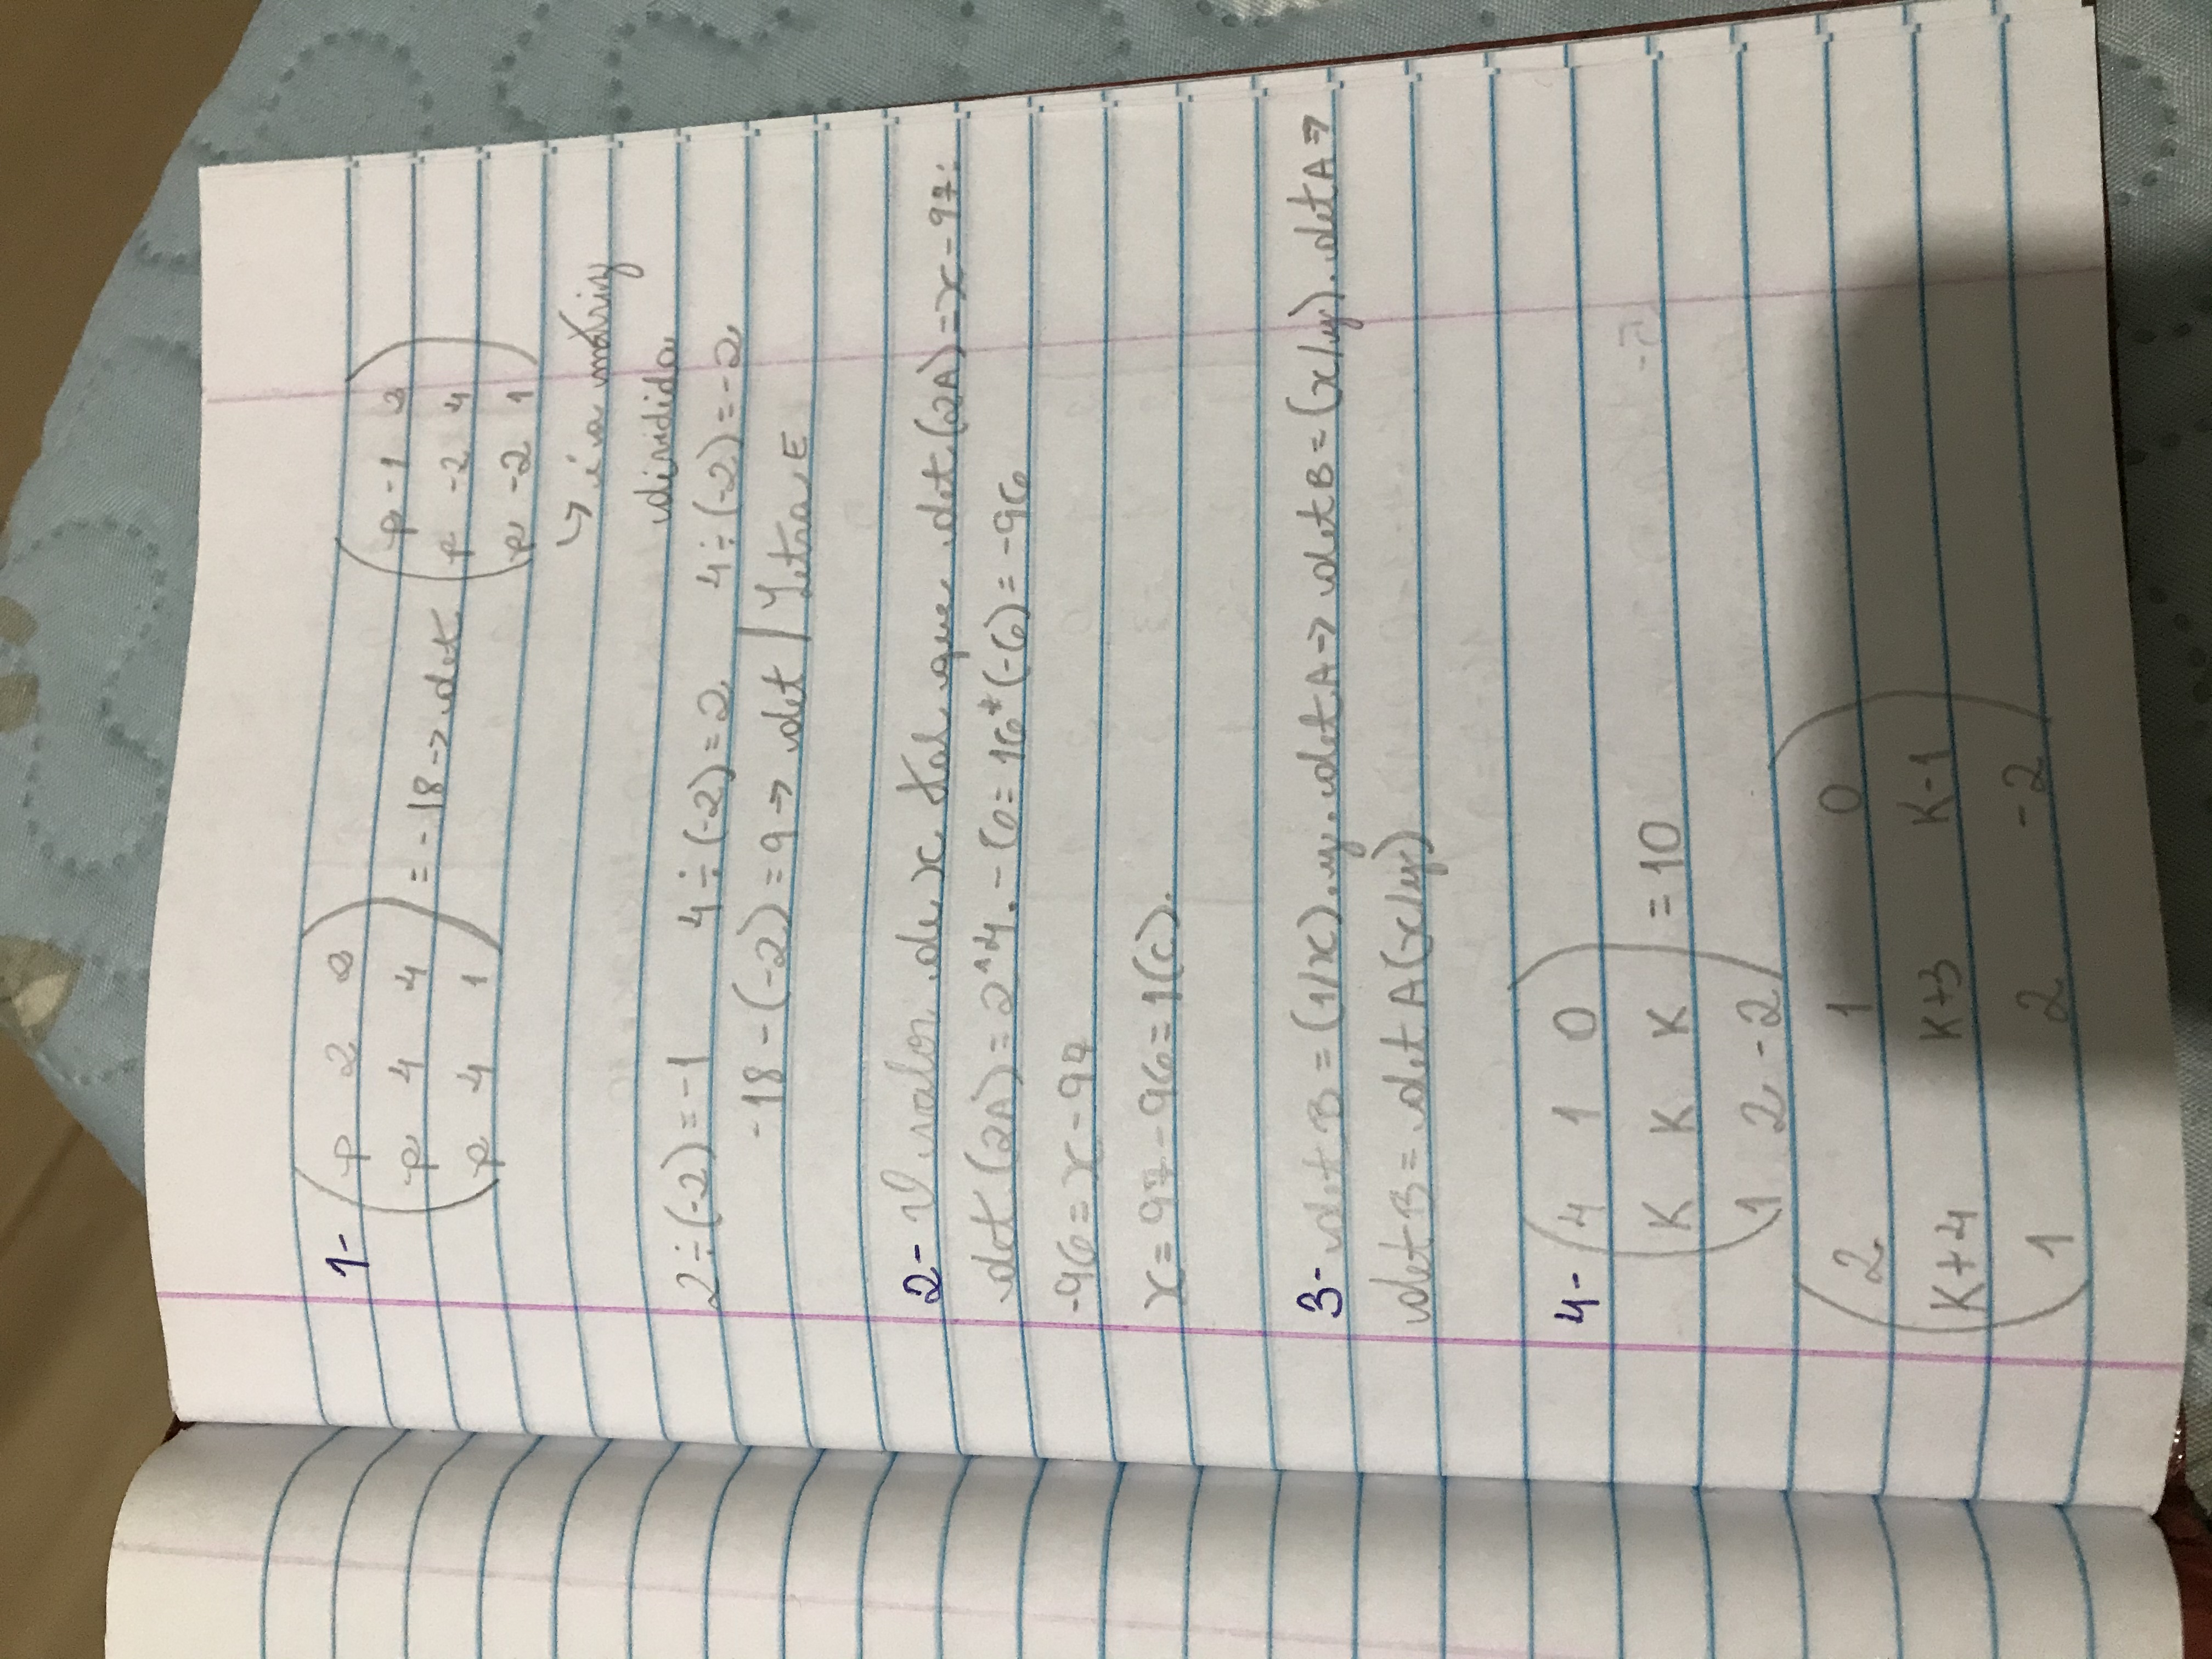 1- ( p 2 2
p 4 4
p 4 1 ) = -18 -> det ( p -1 2
p -2 4
p -2 1 )
↳ é a matriz
dividida
2÷(-2) = -1 4÷(-2) = 2 4÷(-2) = -2
-18 - (-2) = 9 -> det | Letra E
2- O valor de x tal que det (2A) = x - 97:
det (2A) = 2^4. - 6 = 16*(-6) = -96
-96 = x - 97
x = 97 - 96 = 1 (c).
3- det B = (1/x).y.det A => det B = (x/y).det A =>
det B = det A (x/y)
4- ( 4 1 0
K K K
1 2 -2 ) = 10
( 2 1 0
K+4 K+3 K-1
1 2 -2 )